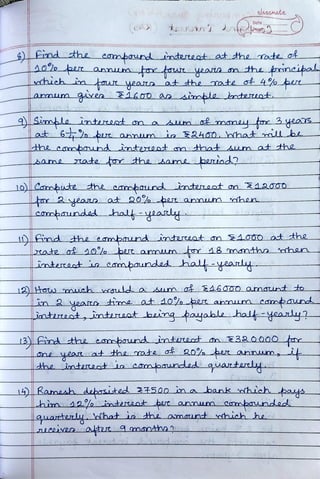 classmate
Date
Page
8) Find the compound interest at the rate of
10% per annum for four years on the principal
which in four years at the rate of 4% per
annum gives ₹1600 as simple interest.
9) Simple interest on a sum of money for 3 years
at 6¼% per annum is ₹2400. What will be
the compound interest on that sum at the
same rate for the same period?
10) Compute the compound interest on ₹12000
for 2 years at 20% per annum when
compounded half-yearly.
11) Find the compound interest on ₹1000 at the
rate of 10% per annum for 18 months when
interest is compounded half-yearly.
12) How much would a sum of ₹16000 amount to
in 2 years time at 10% per annum compound
interest, interest being payable half-yearly?
13) Find the compound interest on ₹320000 for
one year at the rate of 20% per annum, if
the interest is compounded quarterly.
14) Ramesh deposited ₹7500 in a bank which pays
him 12% interest per annum compounded
quarterly. What is the amount which he
receives after 9 months?